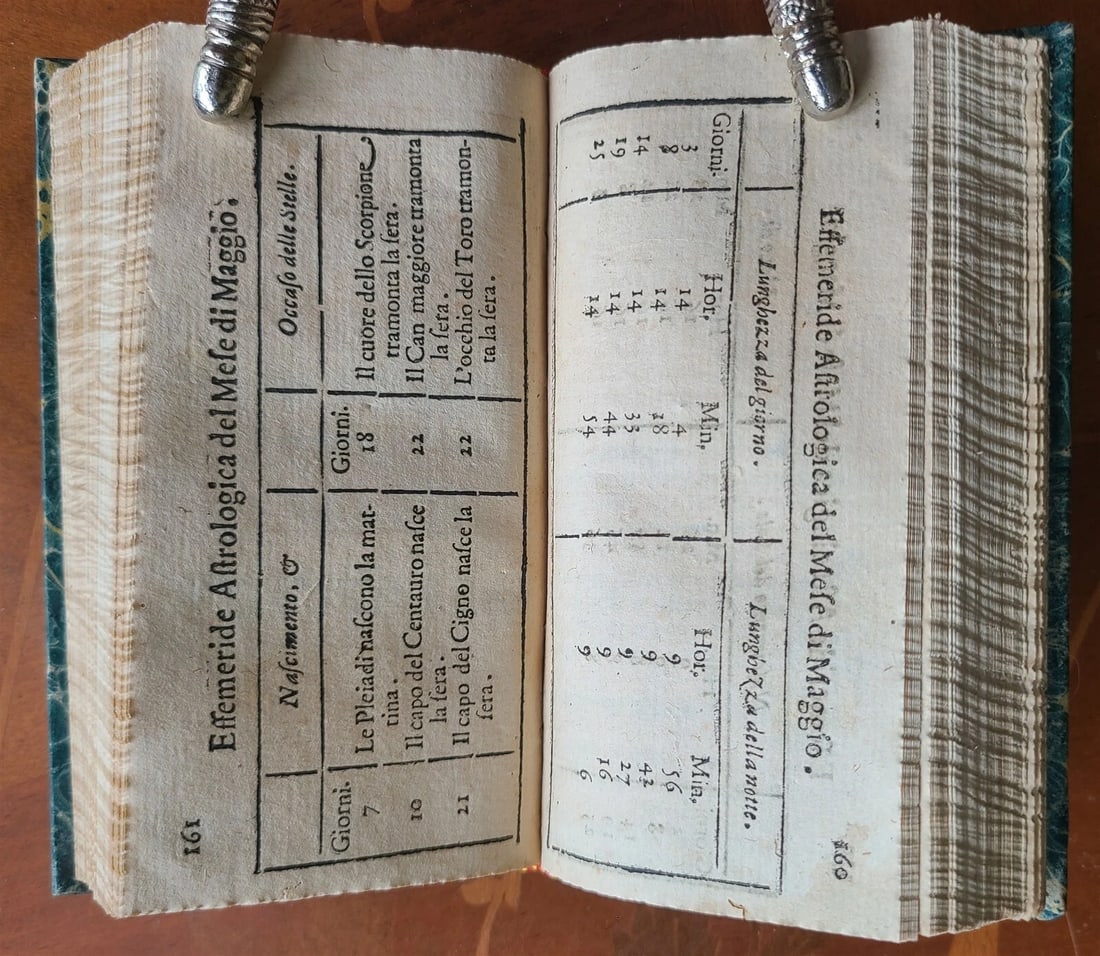 Effemeride Aſtrologica del Meſe di Maggio. 160
Lunghezza del giorno. Lunghezza della notte.
Giorni. Hor, Min, Hor, Min,
3 14 4 9 56
8 14 18 9 42
14 14 33 9 27
19 14 44 9 16
25 14 54 9 6
161 Effemeride Aſtrologica del Meſe di Maggio.
Naſcimento, & Occaſo delle Stelle.
Giorni. Giorni.
7 Le Pleiadi naſcono la mat- 18 Il cuore dello Scorpione
tina. tramonta la ſera.
10 Il capo del Centauro naſce 22 Il Can maggiore tramonta
la ſera. la ſera.
21 Il capo del Cigno naſce la 22 L'occhio del Toro tramon-
ſera. ta la ſera.